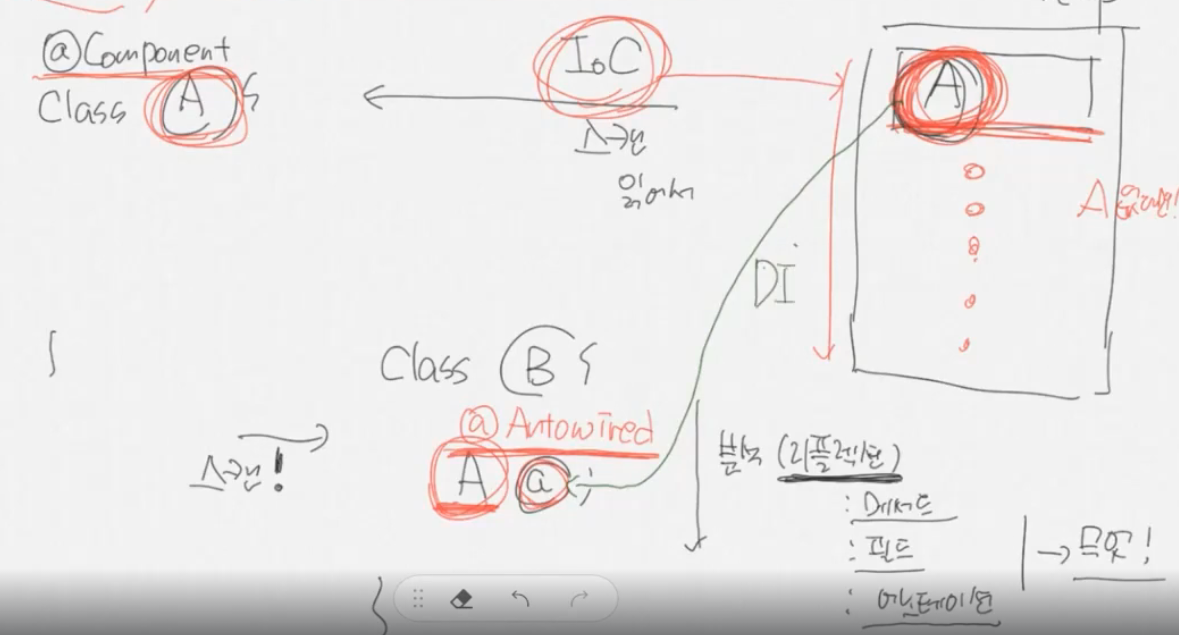 @Component
Class A {
IoC
스캔
읽어서
A
A 있다면!
DI
Class B {
@Autowired
A a ;
스캔!
분석 (리플렉션)
: 메서드
: 필드
: 어노테이션
→ 무엇!
}